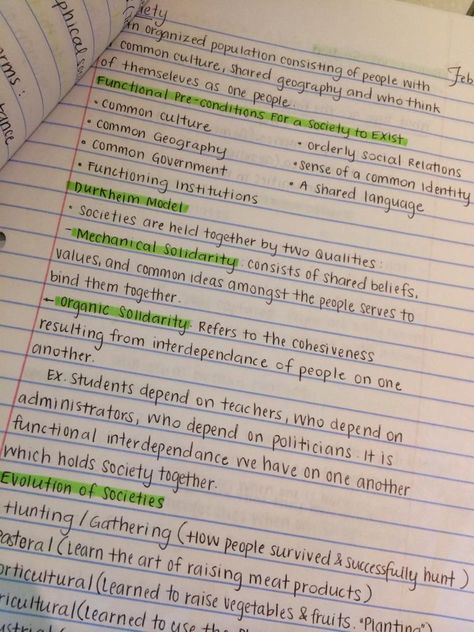 phical
erms:
tance
iety
Feb
an organized population consisting of people with
common culture, shared geography and who think
of themseleves as one people.
Functional Pre-conditions For a Society to Exist
• common culture
• common Geography
• common Government
• Functioning Institutions
• orderly social relations
• sense of a common identity
• A shared language
Durkheim Model
• Societies are held together by two Qualities:
- Mechanical Solidarity: consists of shared beliefs,
values, and common ideas amongst the people serves to
bind them together.
- Organic Solidarity. Refers to the cohesiveness
resulting from interdependance of people on one
another.
Ex. Students depend on teachers, who depend on
administrators, who depend on politicians. It is
functional interdependance we have on one another
which holds society together.
Evolution of Societies
Hunting / Gathering (How people survived & successfully hunt)
astoral (Learn the art of raising meat products)
orticultural (Learned to raise vegetables & fruits. "Planting")
ricultural (Learned to use the